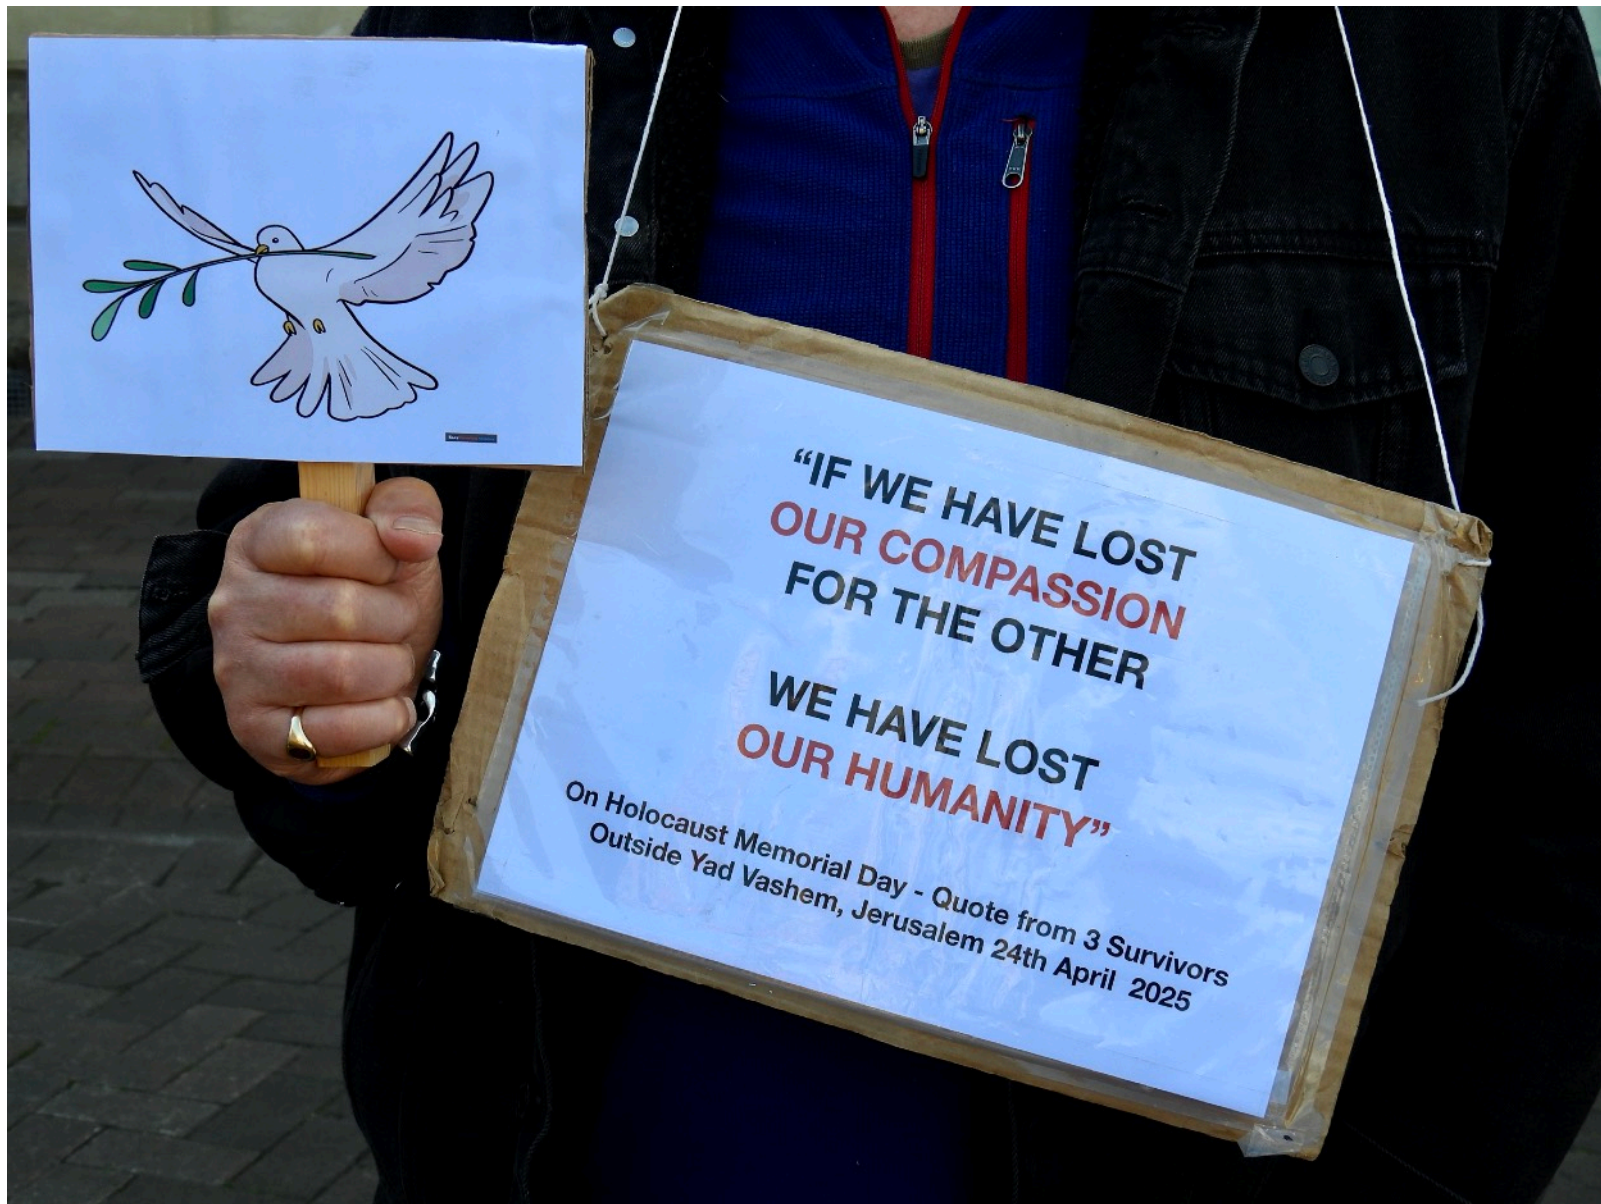 “IF WE HAVE LOST
OUR COMPASSION
FOR THE OTHER
WE HAVE LOST
OUR HUMANITY”
On Holocaust Memorial Day - Quote from 3 Survivors
Outside Yad Vashem, Jerusalem 24th April 2025